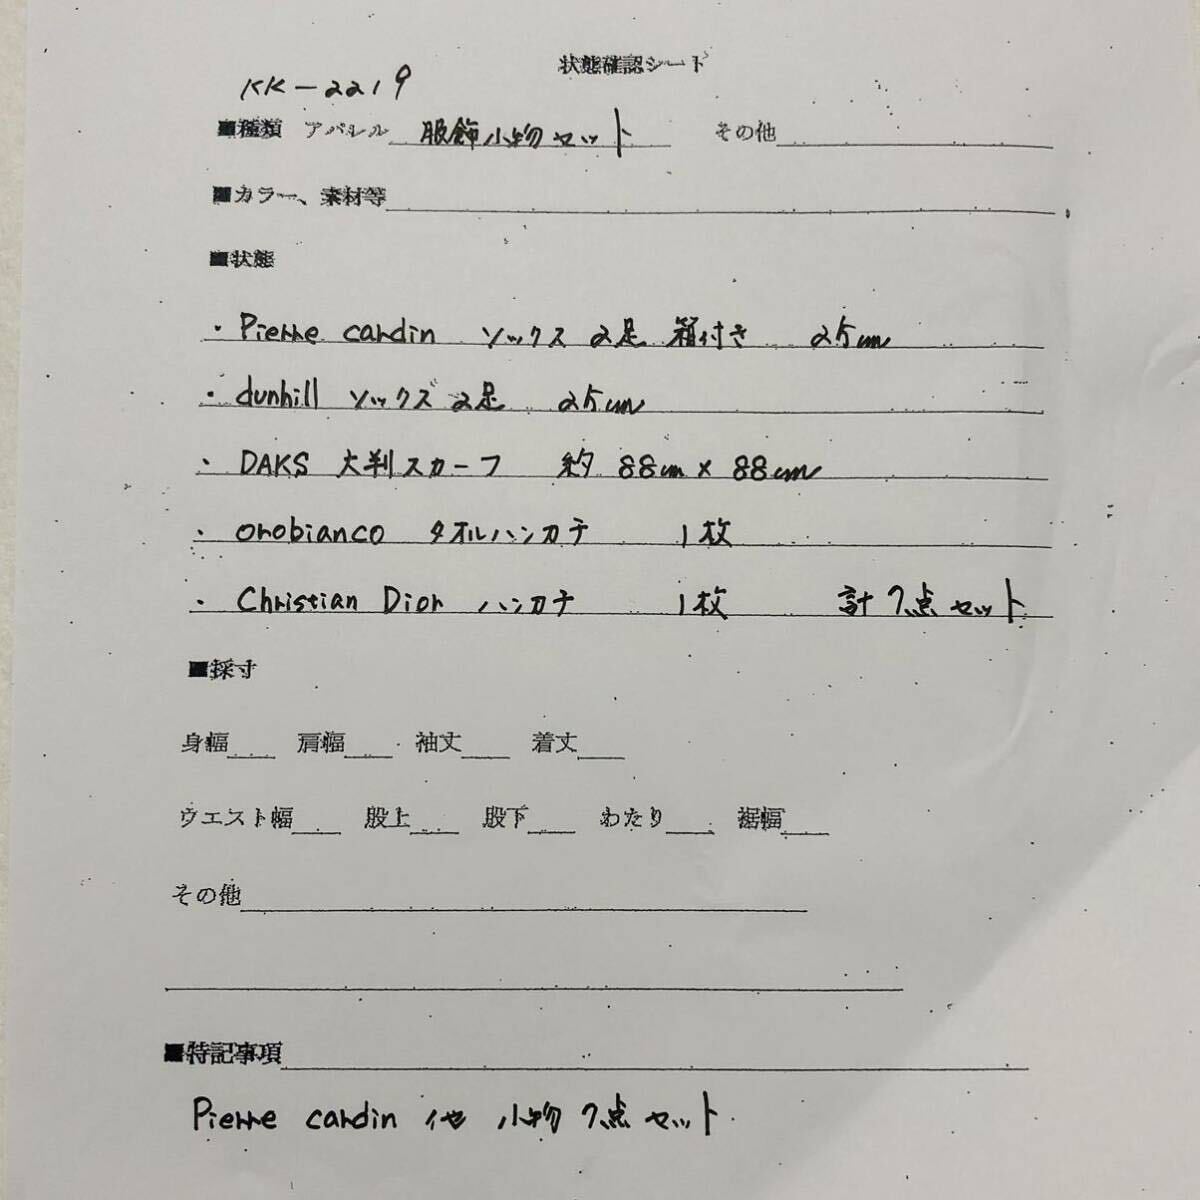 状態確認シート
KK-2219
■種類 アパレル 服飾小物セット その他
■カラー、素材等
■状態
・Pierre cardin ソックス 2足 箱付き 25cm
・dunhill ソックズ 2足 25cm
・DAKS 大判スカーフ 約 88cm × 88cm
・orobianco タオルハンカチ 1枚
・Christian Dior ハンカチ 1枚 計 7点 セット
■採寸
身幅 肩幅 袖丈 着丈
ウエスト幅 股上 股下 わたり 裾幅
その他
■特記事項
Pierre cardin 他 小物 7点 セット